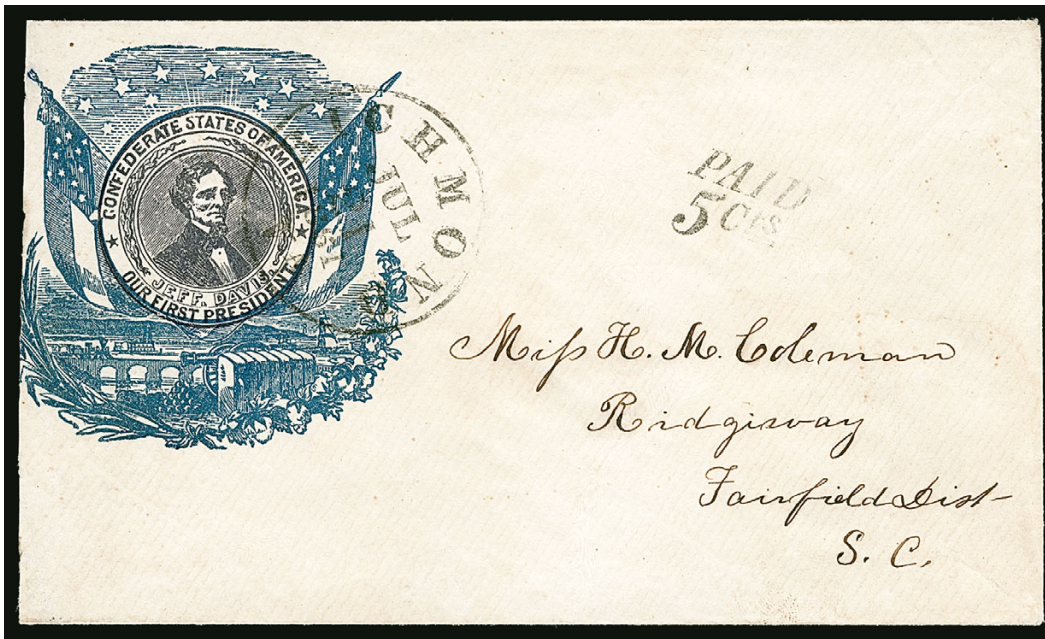 CONFEDERATE STATES OF AMERICA.
JEFF. DAVIS.
OUR FIRST PRESIDENT.
RICHMOND
JUL
PAID
5 Cts
Miſs H. M. Coleman
Ridgiway
Fairfield Dist-
S. C.